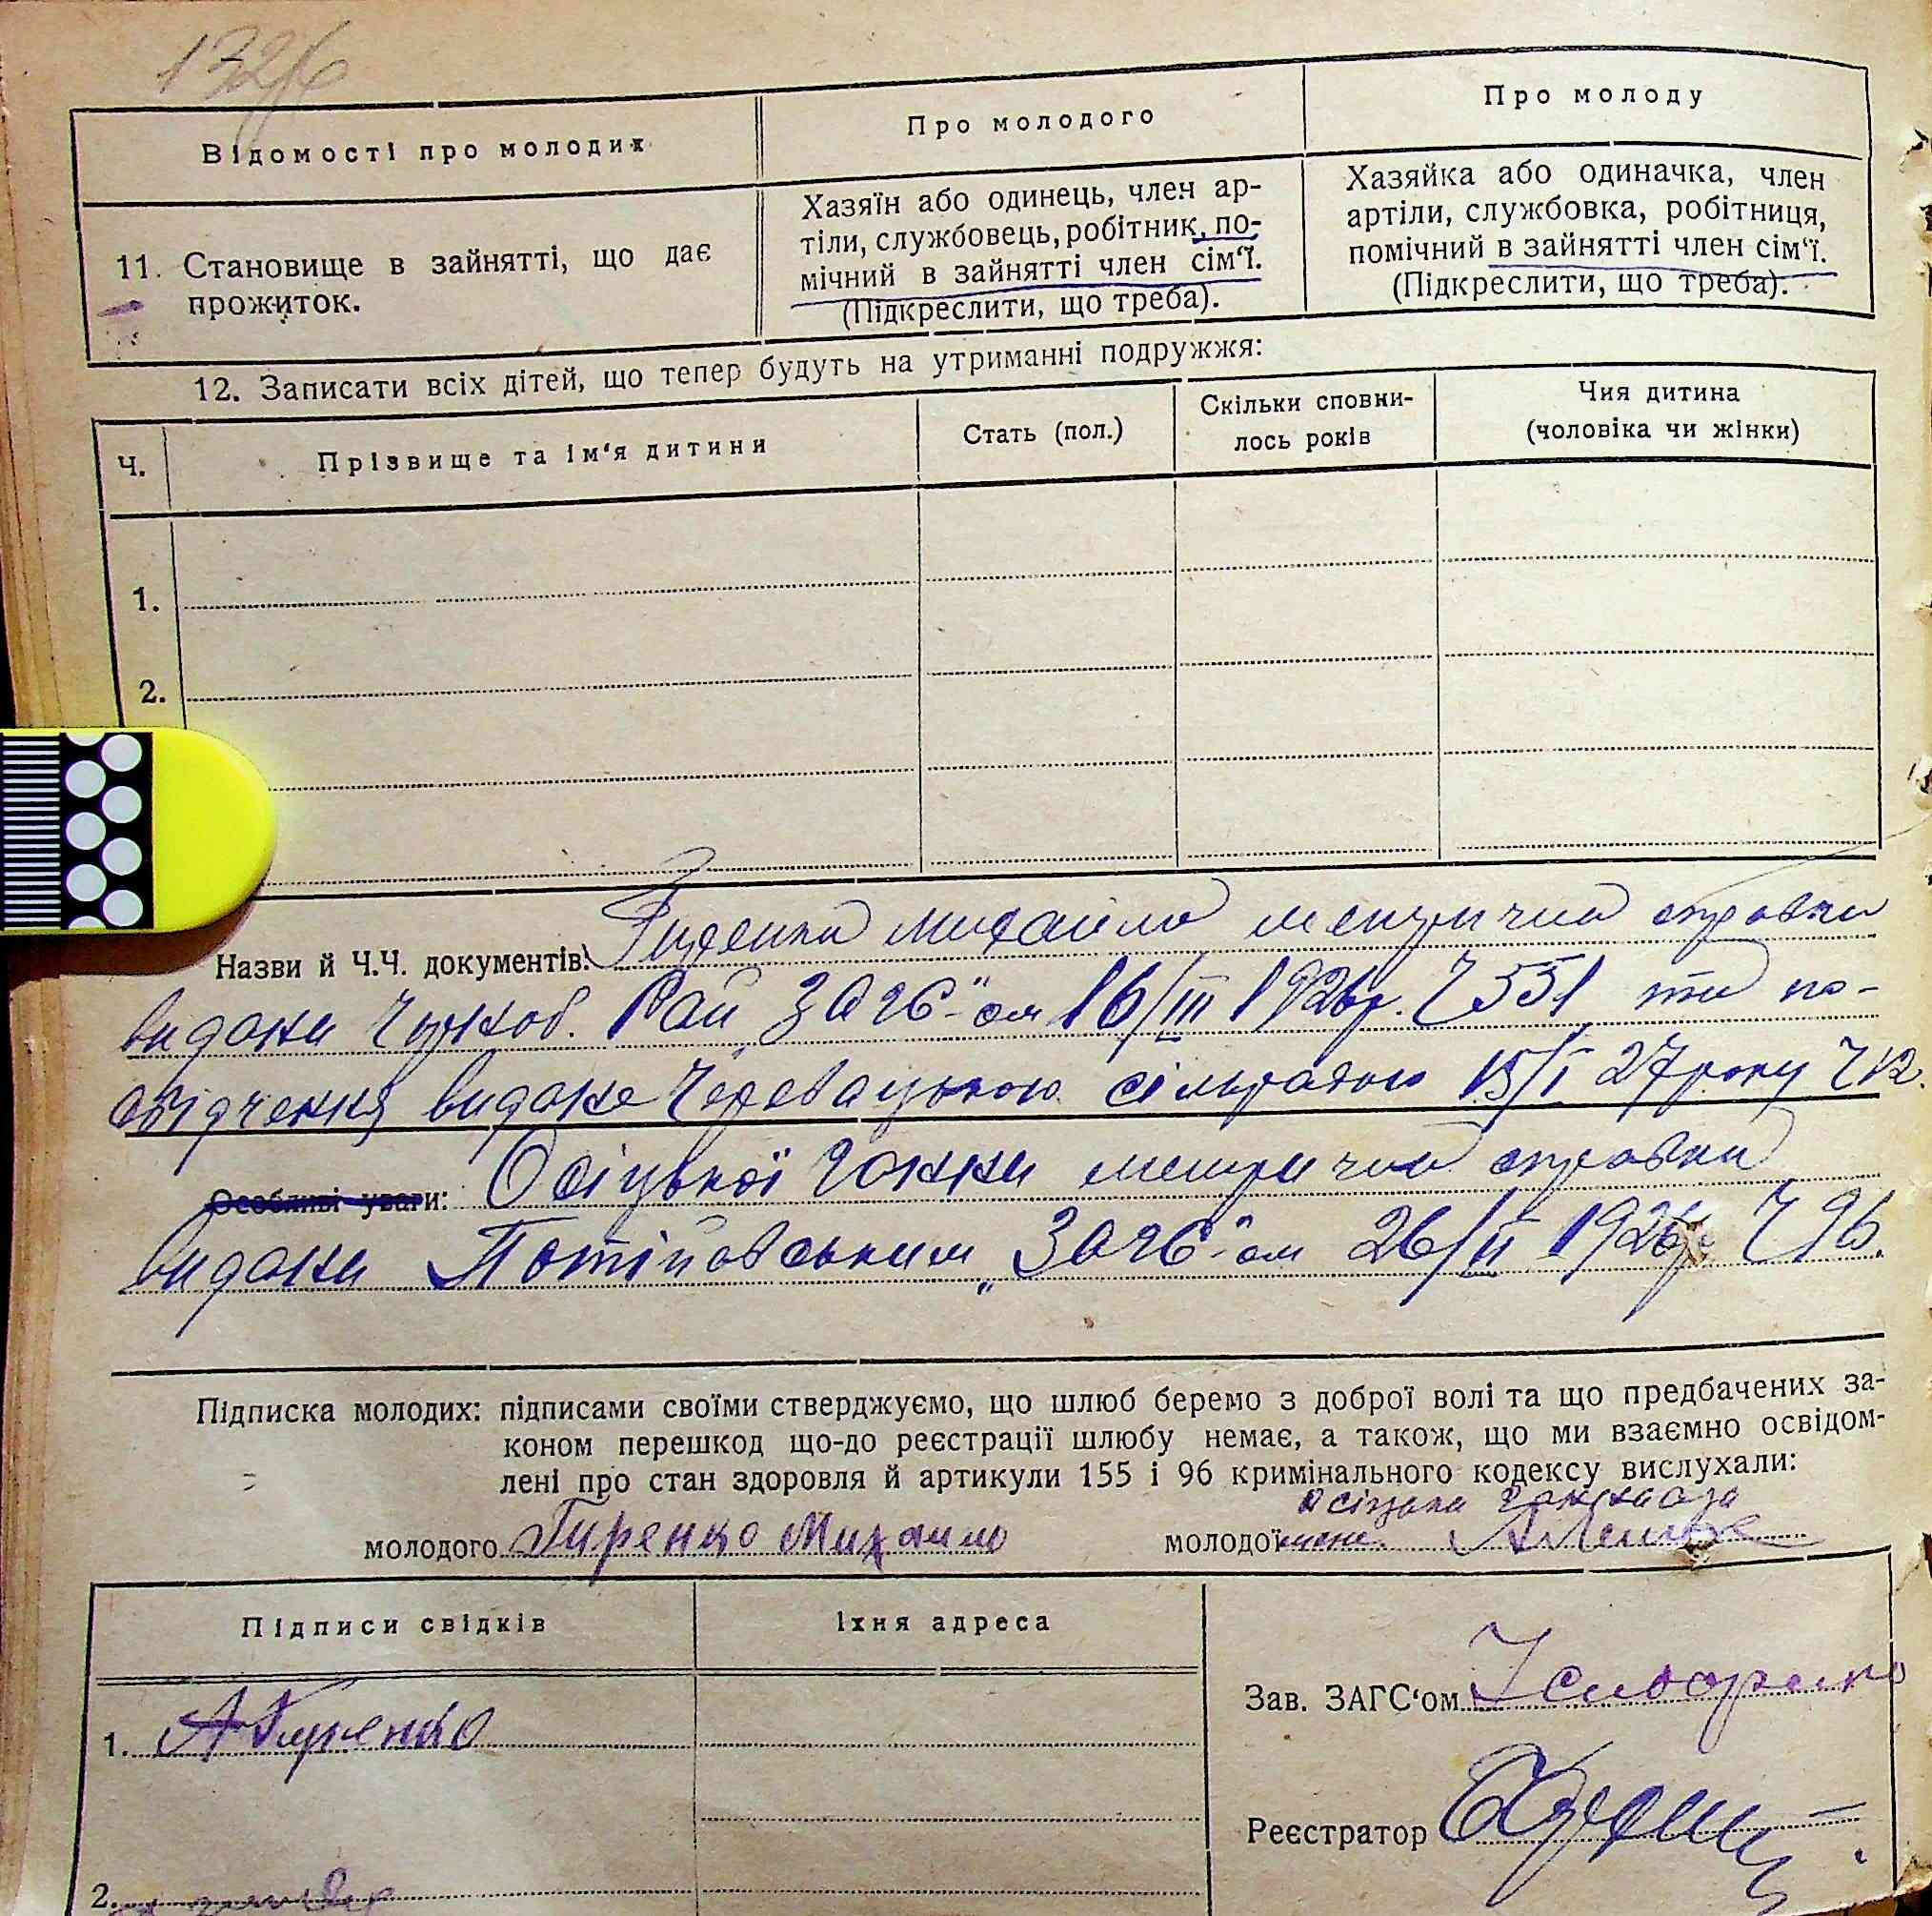 132
Відомості про молодих
Про молодого
Про молоду
11. Становище в зайнятті, що дає
прожиток.
Хазяїн або одинець, член ар-
тіли, службовець, робітник, по-
мічний в зайнятті член сім'ї.
(Підкреслити, що треба).
Хазяйка або одиначка, член
артіли, службовка, робітниця,
помічний в зайнятті член сім'ї.
(Підкреслити, що треба).
12. Записати всіх дітей, що тепер будуть на утриманні подружжя:
Ч.
Прізвище та ім'я дитини
Стать (пол.)
Скільки сповни-
лось років
Чия дитина
(чоловіка чи жінки)
1.
2.
Назви й Ч.Ч. документів: Гиренка Михайла метрична справка
видана Рай „ЗАГС"-ом 16/III 1926р. Ч 551 та по-
свідчення видане сільрадою 15/I 27 року Ч 12.
Особливі уваги: Осіцької Ганни метрична справка
видана Потіївським „ЗАГС"-ом 26/II 1926р. Ч 96.
Підписка молодих: підписами своїми стверджуємо, що шлюб беремо з доброї волі та що предбачених за-
коном перешкод що-до реєстрації шлюбу немає, а також, що ми взаємно освідом-
лені про стан здоровля й артикули 155 і 96 кримінального кодексу вислухали:
молодого Гиренко Михаило
молодої
Підписи свідків
Їхня адреса
1. А Гиренко
2.
Зав. ЗАГС'ом
Реєстратор